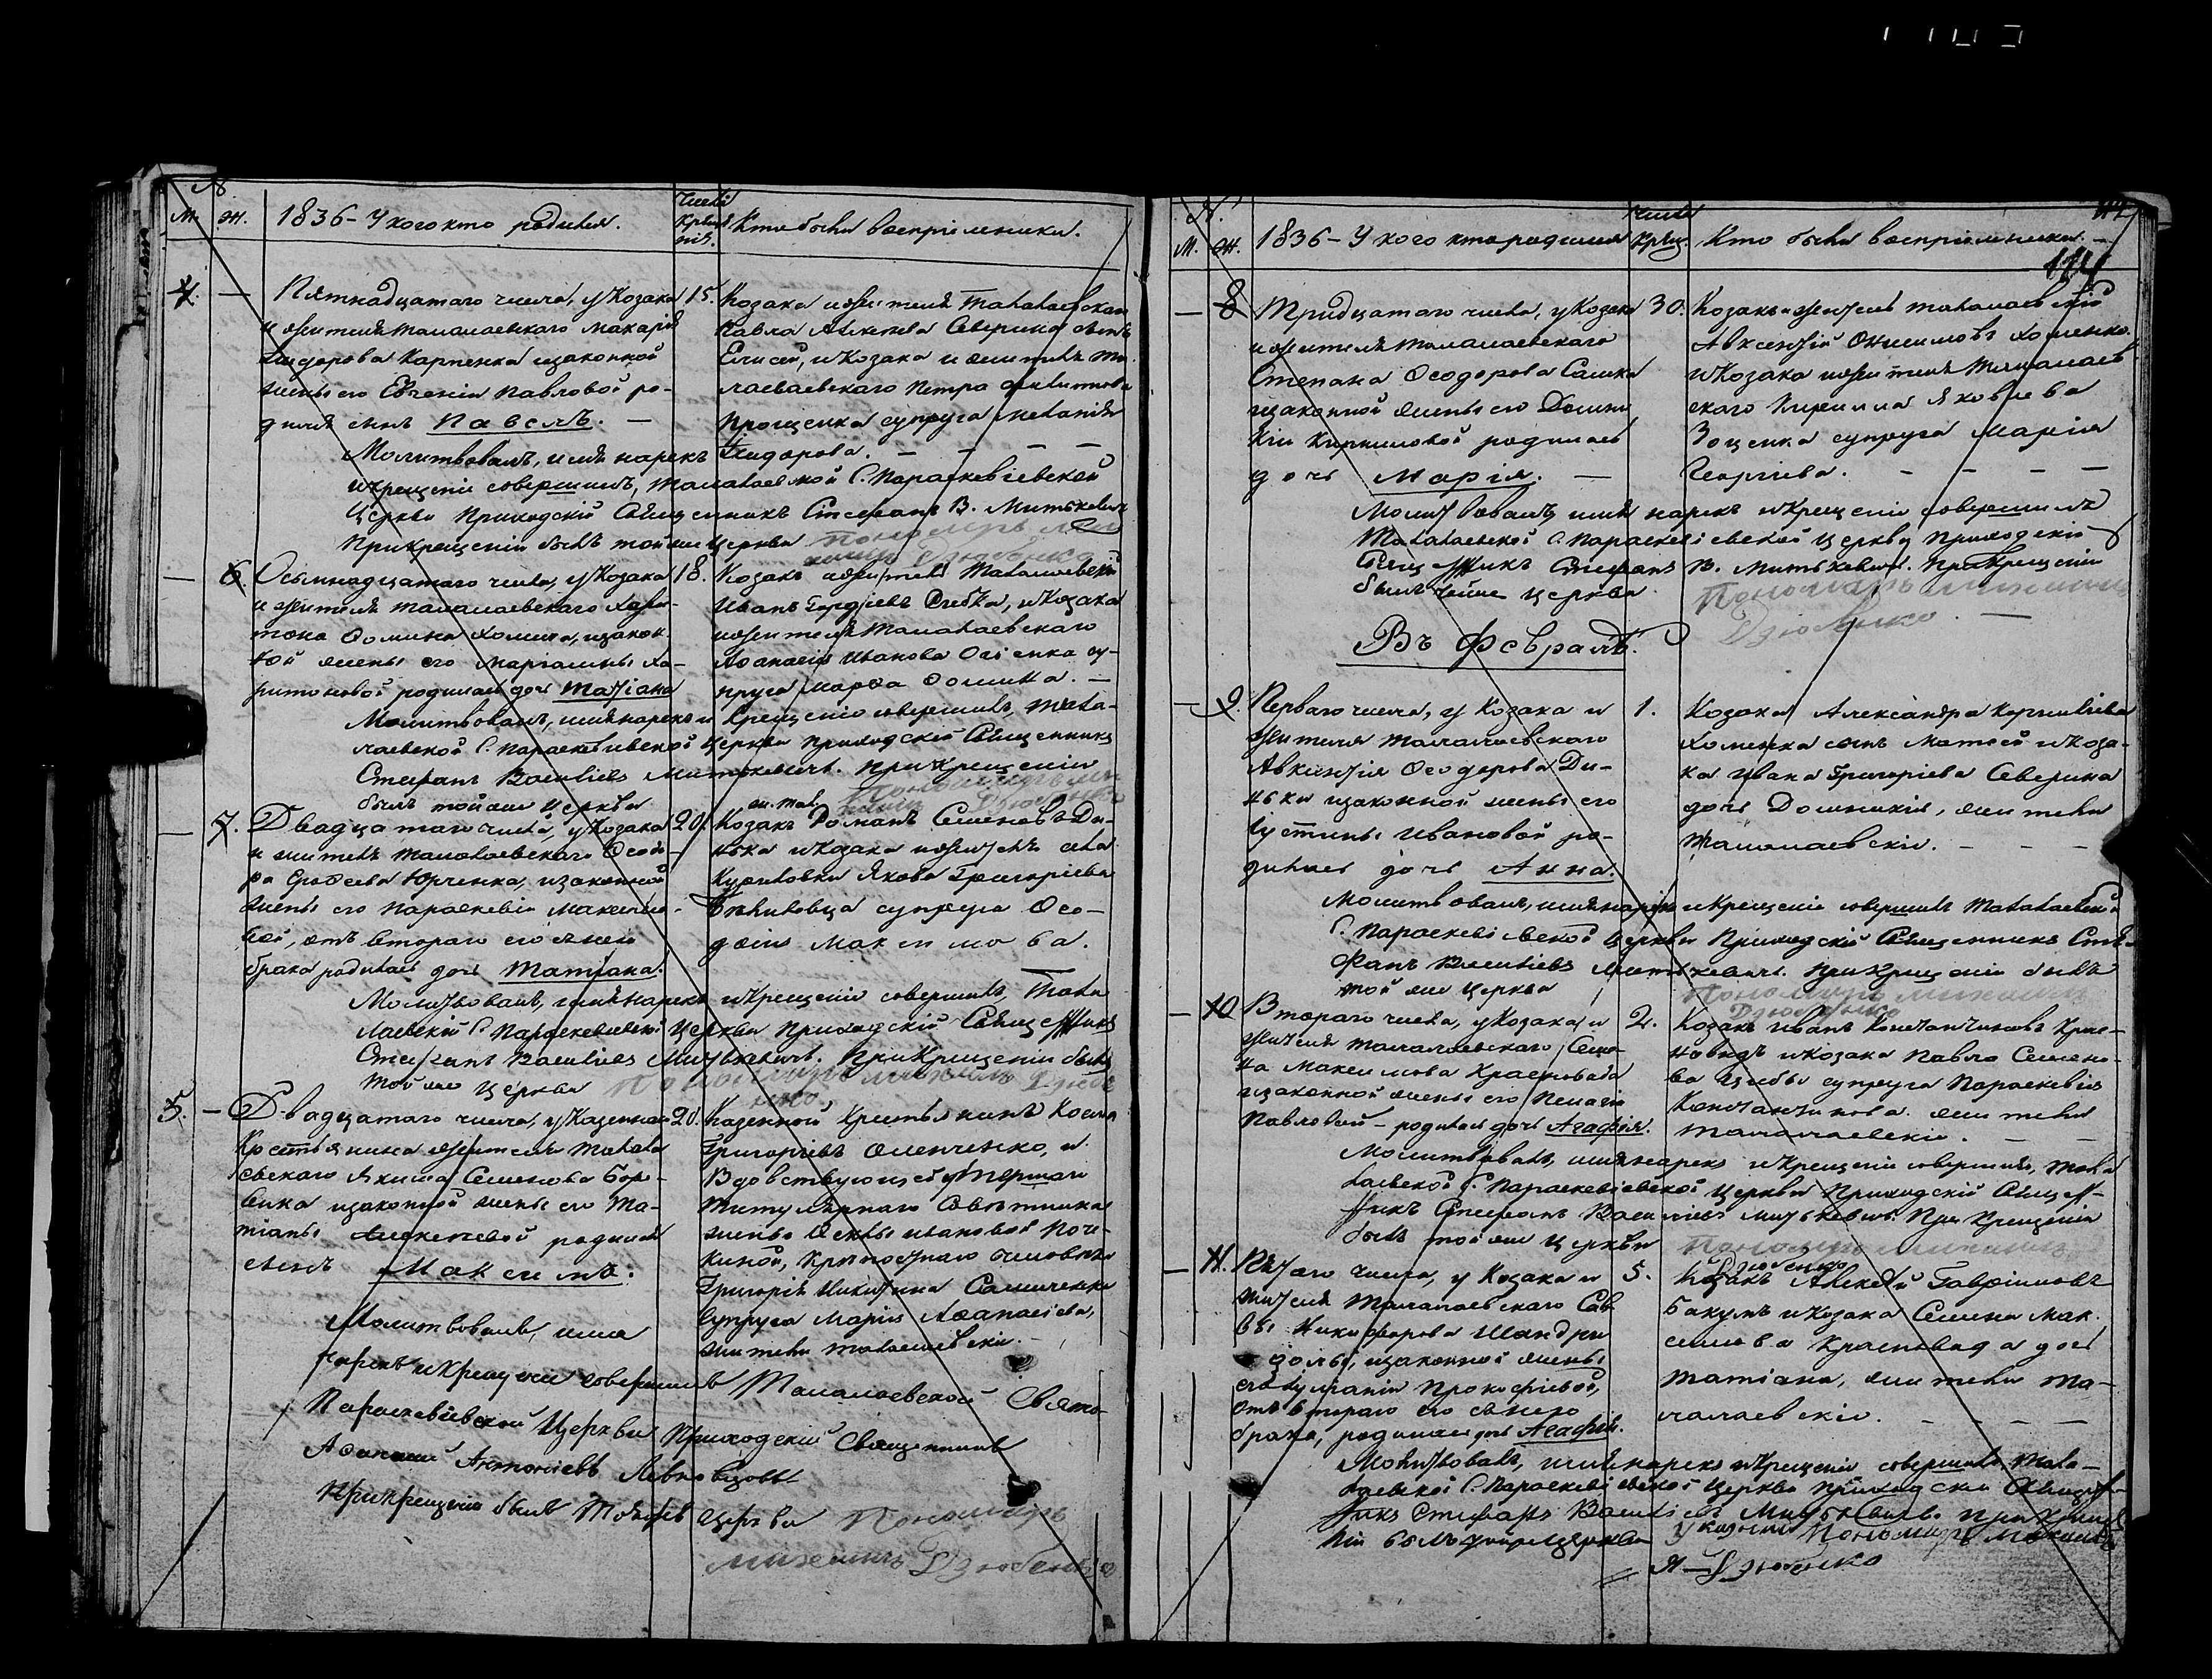 №
М. Ж. 1836 - У кого кто родился. Число Крещенія. Кто были воспріемники.
4. — Пятнадцатого числа, у Козака 15.
и жителя Талалаевского Макарія
Карпенка и законной
жены его Евгеніи Павловой ро-
дился сынъ Павелъ. —
Козака и жителя Талалаевского
Павла Алексѣева Северина сынъ
Елисей, и Козака и жителя Та-
лалаевского Петра
Прощенка супруга Меланія
Молитвовалъ, имя нарекъ
и крещеніе совершилъ, Талалаевской С. Параскевіевской
Церкви Приходскій Священникъ Стефанъ В. Митькевичъ
При крещеніи былъ той же Церкви Пономарь
Дзюбенко
— 6. Осьмнадцатого числа, у Козака 18.
и жителя Талалаевского Хари-
тона Ѳомина Хомича, и закон-
ной жены его Маріамны Ха-
ритоновой родилась дочь Татіана
Козакъ и житель Талалаевскій
Иванъ Гордіевъ и Козака
и жителя Талалаевского
Аѳанасія Иванова су-
пруга Марѳа Ѳомина. —
Молитвовалъ, имя нарекъ и крещеніе совершилъ, Тала-
лаевской С. Параскевіевской Церкви Приходскій Священникъ
Стефанъ Васильевъ Митькевичъ. При крещеніи
былъ той же Церкви
— 7. Двадцатого числа, у Козака 20.
и жителя Талалаевского Ѳеодо-
ра Юрченка, и законной
жены его Параскевіи Максимо-
вой, отъ втораго его съ нею
брака родилась дочь Татіана.
Козакъ Романъ Семеновъ Ди-
нька и Козака и жителя села
Куриловки Якова Григоріева
супруга Ѳео-
досія Максимова.
Молитвовалъ, имя нарекъ и крещеніе совершилъ, Тала
лаевской С. Параскевіевской Церкви Приходскій Священникъ
Стефанъ Васильевъ Митькевичъ. При Крещеніи былъ
той же Церкви Пономарь
5. — Двадцатого числа, у Казенного 20.
Крестьянина жителя Талала
евского Якима Семенова Бор-
вика и законной жены его Та-
тіаны Алексеевой родился
сынъ Максимъ.
Казенной Крестьянинъ Козма
Григорьевъ Оменченко, и
Вдовствующей умершаго
Титулярнаго Совѣтника
жены Ѳеклы Ивановой Поче-
киной, крѣпостнаго человѣка
Григорія Никитина Самиченка
Супруга Марія Аѳанасіева,
жители Талалаевскіе.
Молитвовалъ, имя
нарекъ и Крещеніе совершилъ Талалаевской Свято-
Параскевіевской Церкви Приходскій Священникъ
Аѳанасій Антоніевъ
При крещеніи былъ тойже Церкви Пономарь
Дзюбенко
№
М. Ж. 1836 - У кого кто родился Число Крещ. Кто были воспріемники. —
114
— 8 Тридцатого числа, у Козака 30.
и жителя Талалаевского
Степана Ѳеодорова Сашка
и законной жены его Домни-
кіи Кирилловой родилась
дочь Марія. —
Козакъ и житель Талалаевскій
Авксентій Онисимовъ Хоменко
и Козака и жителя Талалаев-
ского Кирилла Яковлева
Зощенка супруга Марія
Георгіева. — — — —
Молитвовалъ, имя нарекъ и крещеніе совершилъ
Талалаевской С. Параскевіевской Церкви Приходскій
Священникъ Стефанъ В. Митькевичъ. При Крещеніи
былъ тойже Церкви Пономарь
Дзюбенко. —
Въ Февралѣ.
— 9. Перваго числа, у Козака и 1.
жителя Талалаевского
Авксентія Ѳеодорова Ди-
ньки и законной жены его
Іустины Ивановой ро-
дилась дочь Анна.
Козака Александра Корниліева
Хоменка сынъ Матѳей и Коза-
ка Ивана Григоріева Северина
дочь Домникія, жители
Талалаевскіе. — — —
Молитвовалъ, имя нарекъ и Крещеніе совершилъ Талалаевской
С. Параскевіевской Церкви Приходскій Священникъ Сте-
фанъ Васильевъ Митькевичъ. При Крещеніи былъ
той же Церкви Пономарь
Дзюбенко
— 10 Втораго числа, у Козака и 2.
жителя Талалаевского Семе-
на Максимова Красновида
и законной жены его Пелагіи
Павловой — родилась дочь Агафія.
Козакъ Иванъ Константиновъ Крас-
новидъ и Козака Павла Семено-
ва Цибы супруга Параскевія
Константинова. жители
Талалаевскіе. — —
Молитвовалъ, имя нарекъ и Крещеніе совершилъ, Тала
лаевской С. Параскевіевской Церкви Приходскій Священ-
никъ Стефанъ Васильевъ Митькевичъ. При Крещеніи
былъ той же Церкви Пономарь
Дзюбенко
— 11. Пятаго числа, у Козака и 5.
жителя Талалаевского Сав-
вы Никифорова Шандри
и законной жены
его Іуліаніи Прокофіевой,
отъ втораго его съ нею
брака, родилась дочь Агафія.
Козакъ Алексѣй
Бакумъ и Козака Семена Мак-
симова Красновида дочь
Татіана, жители Та-
лалаевскіе. — — — —
Молитвовалъ, имя нарекъ и Крещеніе совершилъ, Тала-
лаевской С. Параскевіевской Церкви Приходскій Священ-
никъ Стефанъ Васильевъ Митькевичъ. При Крещѣ-
ніи былъ тойже Церкви Пономарь
Дзюбенко